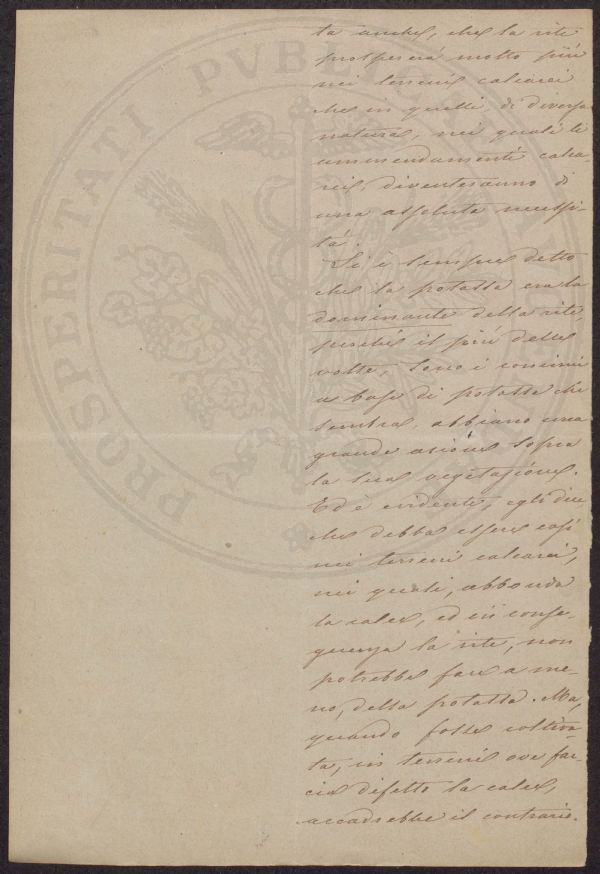 PROSPERITATI PVBLICAE
ta anche, che la vite
prospererà molto più
nei terreni calcarei
che in quelli, di diversa
natura, nei quali li
ammendamenti calca-
rei, diventeranno di
una assoluta necessi-
tà.
Si è sempre detto
che la potassa era la
dominante della vite,
perchè il più delle
volte, sono i concimi
a base di potassa che
sembra, abbiano una
grande azione sopra
la sua vegetazione.
Ed è evidente, egli dice
che debba essere così
nei terreni calcarei,
nei quali, abbonda
la calce, ed in conse-
guenza la vite, non
potrebbe fare a me-
no, della potassa. Ma,
quando fosse coltiva-
ta, in terreni ove fac-
cia difetto la calce,
accadrebbe il contrario.